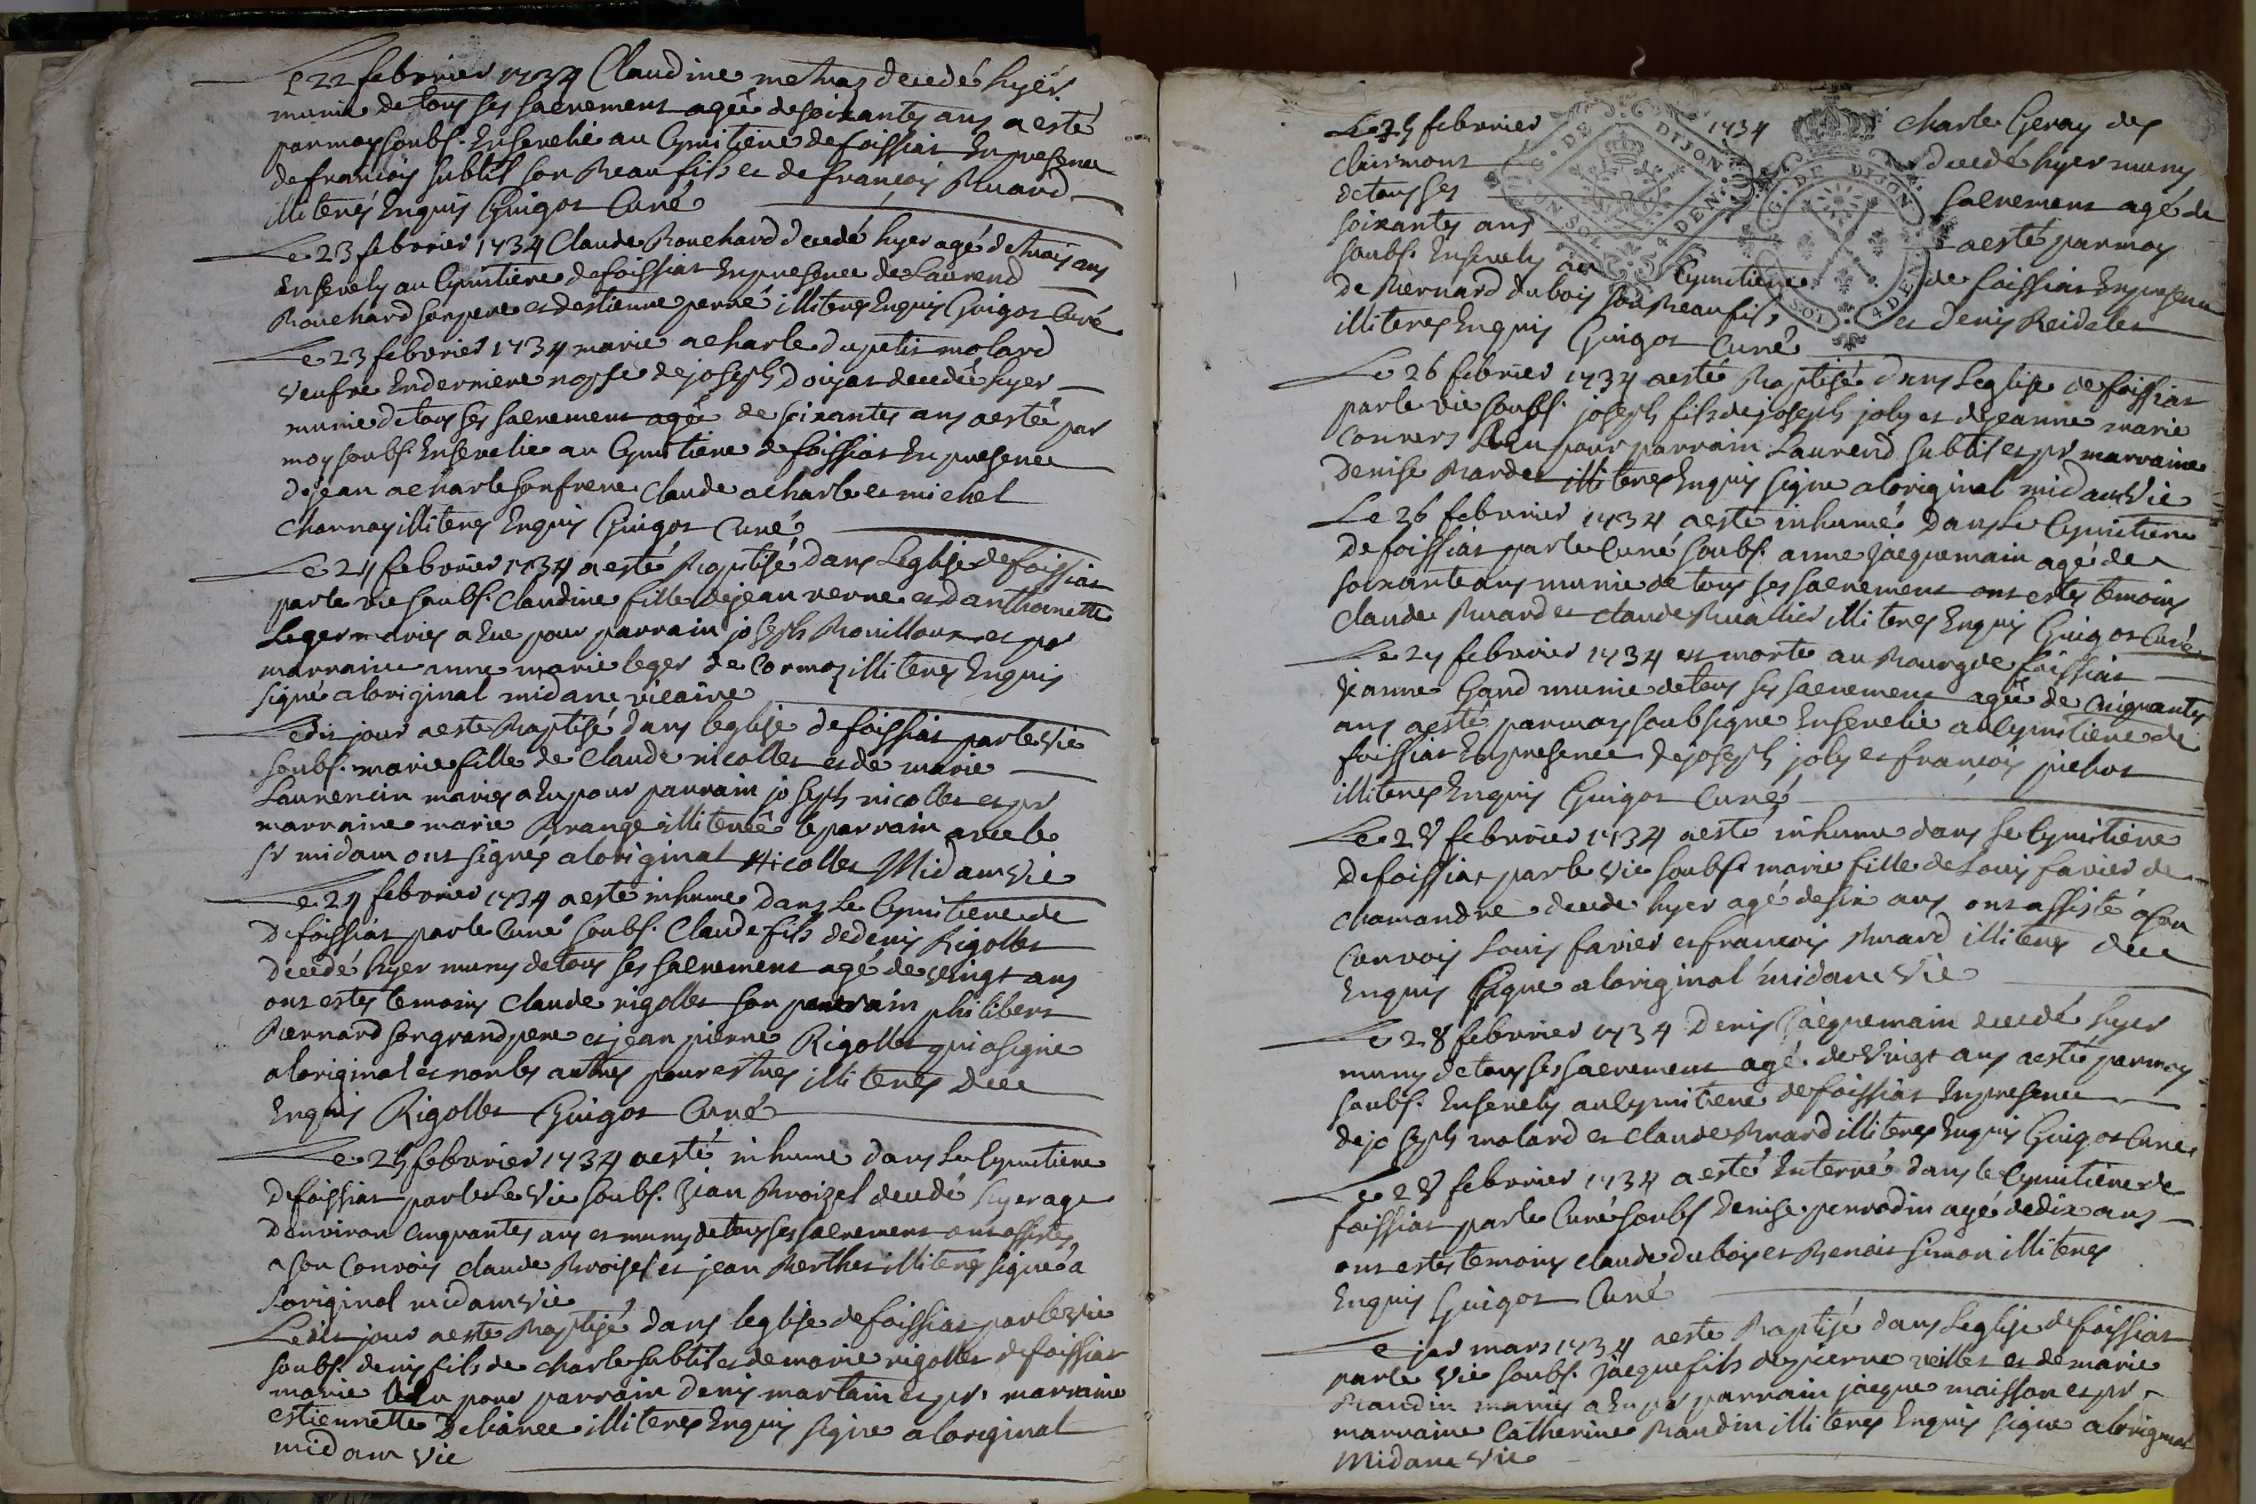 Le 22 febvrier 1734 Claudine methraz decedé hyer
munie de tous ses sacrement agée de soixantes ans a esté
par moy soubs. Ensevelie au Cymitiere de foissiat En presence
de françois subtil son Beaufils et de françois Buard
illiterés Enquis Guigot Curé
Le 23 febvrier 1734 Claude Bouchard decedé hyer agé de trois ans
Ensevely au Cymitiere de foissiat En presence de Laurend
Bouchard son pere et destienne perré illiteres Enquis Guigot Curé
Le 23 febvrier 1734 marie acharle du petit molard
veufve En derniere nopse de joseph doigat decedée hyer
munie de tous ses sacrement agée de soixantes ans a esté par
moy soubs. Ensevelie au Cymitiere de foissiat En presence
de jean acharle son frere Claude acharle et michel
charnay illiteres Enquis Guigot Curé
Le 24 febvrier 1734 a esté Baptisé dans Leglise de foissiat
par le vie soubs. Claudine fille de jean verne et danthoinette
Leger maries a Eue pour parrain joseph Bouilloux et pr
marraine anne marie leger de Cormoz illiteres Enquis
signé a loriginal midan vicaire
Ledit jour a esté Baptisé dans leglise de foissiat par le vie
soubs. marie fille de Claude nicollet et de marie
Laurencin maries a Eu pour parrain joseph nicollet et pr
marraine marie Brange illiterée le parrain avec le
sr midan ont signés a loriginal Nicollet Midan vie
Le 24 febvrier 1734 a esté inhume dans Le Cymitiere de
de foissiat par le Curé soubs. Claude fils de denis Rigollet
decedé hyer muny de tous ses sacrement agé de vingt ans
ont estes temoins Claude rigollet son parrain philibert
Bernard son grand pere et jean pierre Rigollet qui a signe
a loriginal et non les autres pour estres illiteres de ce
Enquis Rigollet Guigot Curé
Le 25 febvrier 1734 a esté inhume dans Le Cymitiere
de foissiat par le Le vie soubs. Jean Broizel decedé hyer age
denviron cinquantes ans et muny de tous ses sacrement ont assistes
a son Convois claude Broisel et jean Berthet illiteres signé a
loriginal midan vie
Ledit jour a esté Baptisé dans leglise de foissiat par le vie
soubs. denis fils de charle subtil et de marie rigollet de foissiat
marie a Eu pour parrain denis martain et pr. marraine
estiennette illiteres Enquis signe a loriginal
midan vie
Le 25 febvrier 1734 charle Geray des
clairmont decedé hyer muny
de tous ses sacrement agé de
soixantes ans a esté par moy
soubs. Ensevely au Cymitiere de foissiat En presence
de Bernard dubois son Beaufils et denis Reidelet
illiteres Enquis Guigot Curé
G. DE DIJON
UN SOL 4 DEN.
G. DE DIJON
SOL 4 DEN.
Le 26 febvrier 1734 a esté Baptisé dans Leglise de foissiat
par le vie soubs. joseph fils de joseph joly et de jeanne marie
Convers a Eu pour parrain Laurend subtil et pr marraine
denise Bardet illiteres Enquis signe a loriginal midan vie
Le 26 febvrier 1734 a esté inhumé dans Le Cymitiere
de foissiat par le Curé soubs. anne jacquemain agé de
soixante ans munie de tous ses sacrement ont estes temoins
Claude Buard et claude Buathier illiteres Enquis Guigot Curé
Le 27 febvrier 1734 est morte au Bourg de foissiat
jeanne Gand munie de tous ses sacrement agée de cinquantes
ans a esté par moy soubsigne Ensevelie au Cymitiere de
foissiat En presence de joseph joly et françois pichat
illiteres Enquis Guigot Curé
Le 28 febvrier 1734 a esté inhume dans Le Cymitiere
de foissiat par le vie soubs. marie fille de Louis favier de
chamandre decede hyer agé de six ans ont assisté a son
Convois Louis favier et françois Buard illiteres de ce
Enquis signe a loriginal midan vie
Le 28 febvrier 1734 denis jacquemain decedé hyer
muny de tous ses sacrement agé de vingt ans a esté par moy
soubs. Ensevely au Cymitiere de foissiat En presence
de joseph molard et claude Buard illiteres Enquis Guigot Curé
Le 28 febvrier 1734 a esté Enterré dans le Cymitiere de
foissiat par le Curé soubs denise perrodin agé de dix ans
ont estes temoins claude dubois et Benoit simon illiteres
Enquis Guigot Curé
Le jer mars 1734 a esté Baptisé dans Leglise de foissiat
par le vie soubs. jacque fils de pierre veillet et de marie
Baudin maries a Eu pr parrain jacque maisson et pr
marraine Catherine Baudin illiteres Enquis signe a loriginal
Midan vie